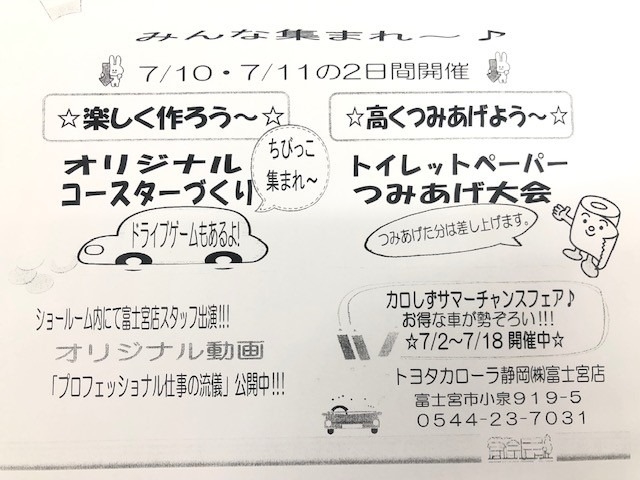 みんな集まれ～♪
7/10・7/11の2日間開催
☆楽しく作ろう～☆
オリジナル
コースターづくり
ちびっこ
集まれ～
ドライブゲームもあるよ!
☆高くつみあげよう～☆
トイレットペーパー
つみあげ大会
つみあげた分は差し上げます。
ショールーム内にて富士宮店スタッフ出演!!!
オリジナル動画
「プロフェッショナル仕事の流儀」公開中!!!
カロしずサマーチャンスフェア♪
お得な車が勢ぞろい!!!
☆7/2～7/18 開催中☆
トヨタカローラ静岡㈱富士宮店
富士宮市小泉919-5
0544-23-7031